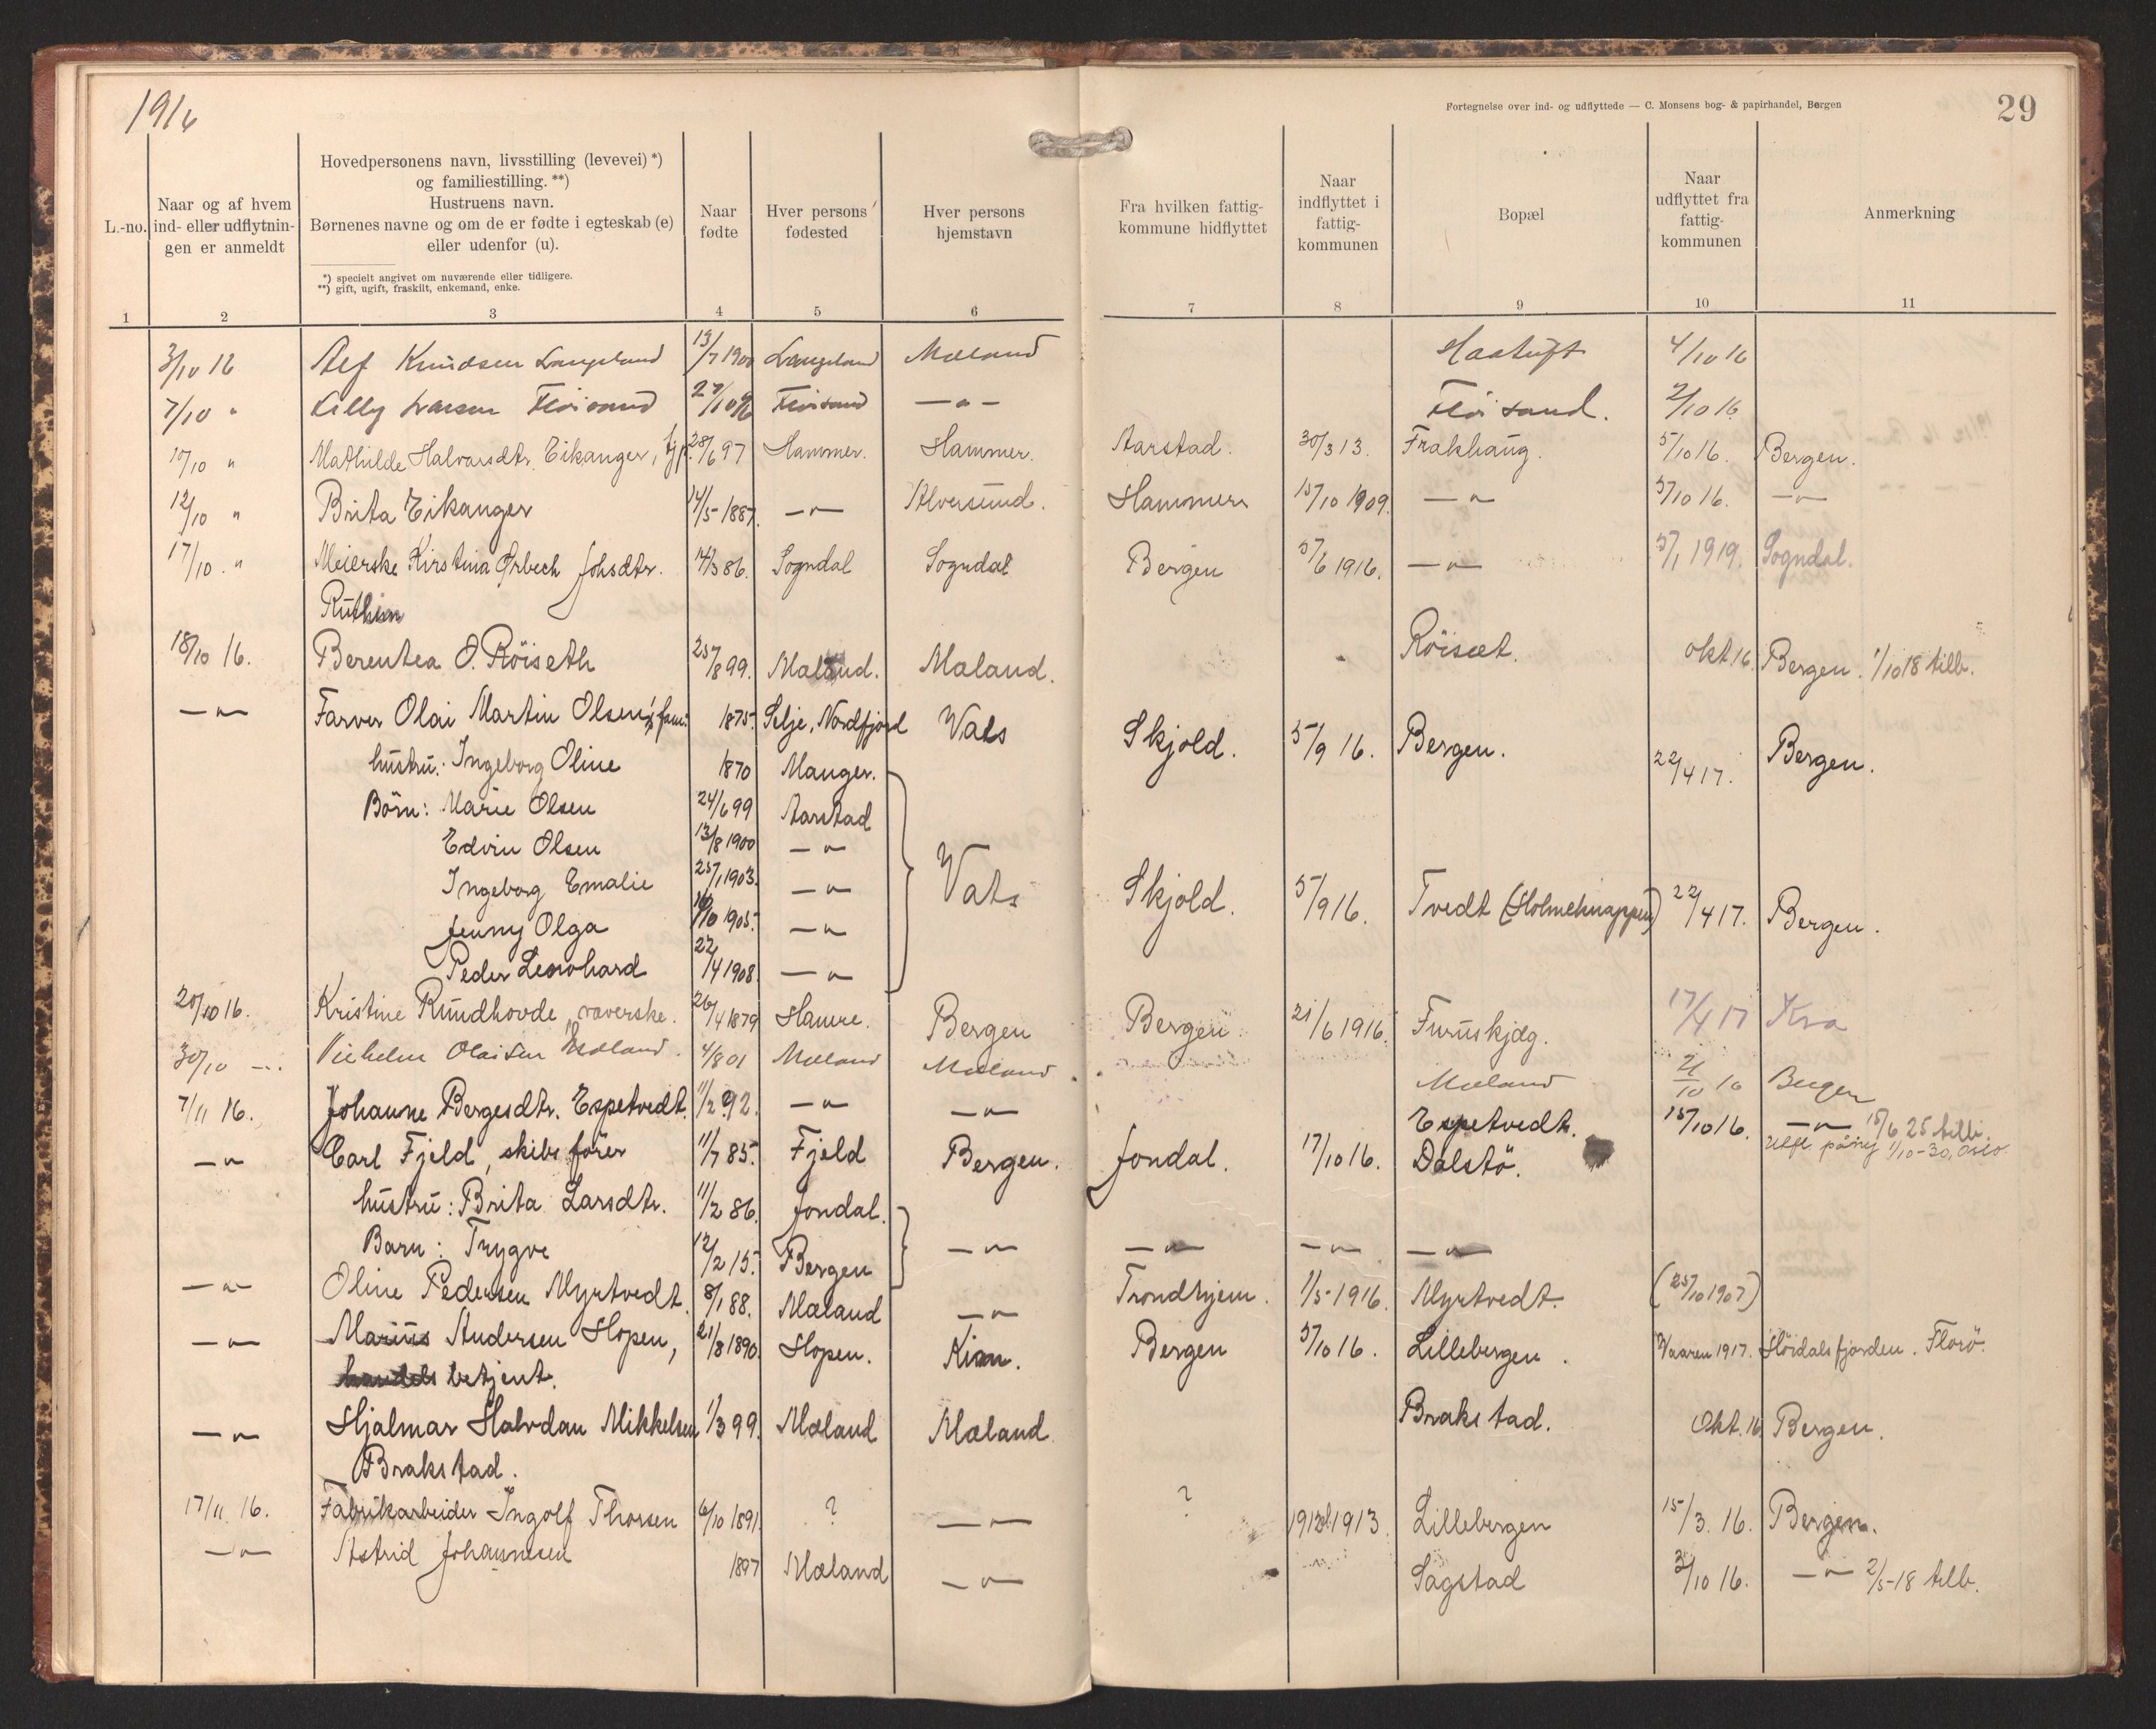 1916
Fortegnelse over ind- og udflyttede — C. Monsens bog- & papirhandel, Bergen
29
L.-no.
Naar og af hvem
ind- eller udflytnin-
gen er anmeldt
Hovedpersonens navn, livsstilling (levevei) *)
og familiestilling. **)
Hustruens navn.
Børnenes navne og om de er fødte i egteskab (e)
eller udenfor (u).
*) specielt angivet om nuværende eller tidligere.
**) gift, ugift, fraskilt, enkemand, enke.
Naar
fødte
Hver persons
fødested
Hver persons
hjemstavn
Fra hvilken fattig-
kommune hidflyttet
Naar
indflyttet i
fattig-
kommunen
Bopæl
Naar
udflyttet fra
fattig-
kommunen
Anmerkning
1 2 3 4 5 6 7 8 9 10 11
3/10 16 Alf Knudsen Langeland 13/7 1900 Langeland Mæland 4/10 16
7/10 " Larsen Fløisand Fløisand — " — Fløisand. 2/10 16
10/10 " Mathilde Halvorsdtr. Eikanger, tjp. 28/6 97 Hammer. Hammer. Aarstad. 30/3 13. Frakhaug. 5/10 16. Bergen.
12/10 " Brita Eikanger 14/5 1887. — " — Alversund. Hammer 15/10 1909. — " — 5/10 16. — " —
17/10. " Meierske Kirstina Ørbech Johsdtr. 14/3 86. Sogndal Sogndal Bergen 5/6 1916. — " — 5/1 1919. Sogndal.
18/10 16. Berentea O. Röiseth 25/8 99. Mæland. Mæland. Röiset. okt 16. Bergen. 1/10 18 tilb.
— " — Farver Olai Martin Olsen's fam: 1875. Selje, Nordfjord Vats Skjold. 5/9 16. Bergen. 22/4 17. Bergen.
hustru: Ingeborg Oline 1870 Manger.
Börn: Marie Olsen 24/6 99 Aarstad
Edvin Olsen 13/8 1900 — " —
Ingeborg Emalie 25/1 1903. — " — Vats Skjold. 5/9 16. Tvedt (Holmeknappen) 22/4 17. Bergen.
Jenny Olga 1905. — " —
Peder Leonhard 22/4 1908. — " —
20/10 16. Kristine Rundhovde, væverske. 26/4 1879 Hamre. Bergen Bergen 21/6 1916. Furuskjæg. 17/4 17 Kra
30/10 — Vilhelm Olaisen Mæland. 4/8 01 Mæland Mæland Mæland 21/10 16 Bergen
7/11 16. Johanne Bergesdtr. Espetvedt. 11/2 92. — " — — " — Espetvedt. 15/10 16. — " — 15/6 25 tilb.
— " — Carl Fjeld, skibsförer 11/7 85. Fjeld Bergen. Jondal. 17/10 16. Dalstö. Utfl. påny 1/10-30, Oslo.
hustru: Brita Larsdtr. 11/2 86. Jondal.
Barn: Trygve 12/2 15. Bergen — " — — " — — " — — " —
— " — Oline Pedersen Myrtvedt. 8/1 88. Mæland — " — Trondhjem. 1/5-1916. Myrtvedt. (25/10 1907)
— " — Marius Andersen Hopen, 21/8 1890. Hopen. Kinn. Bergen 5/10 16. Lillebergen. Vaaren 1917. Hördalsfjorden. Florö.
handelsbetjent.
— " — Hjalmar Halvdan Mikkelsen 1/3 99. Mæland Mæland Brakstad. Okt. 16 Bergen.
Brakstad.
17/11 16. Fabrikarbeider Ingolf Thorsen 6/10 1891. ? — " — ? 1913 Lillebergen 15/3. 16. Bergen.
— " — Astrid Johannesen 1897 Mæland — " — Sagstad 3/10 16. — " — 2/5-18 tilb.